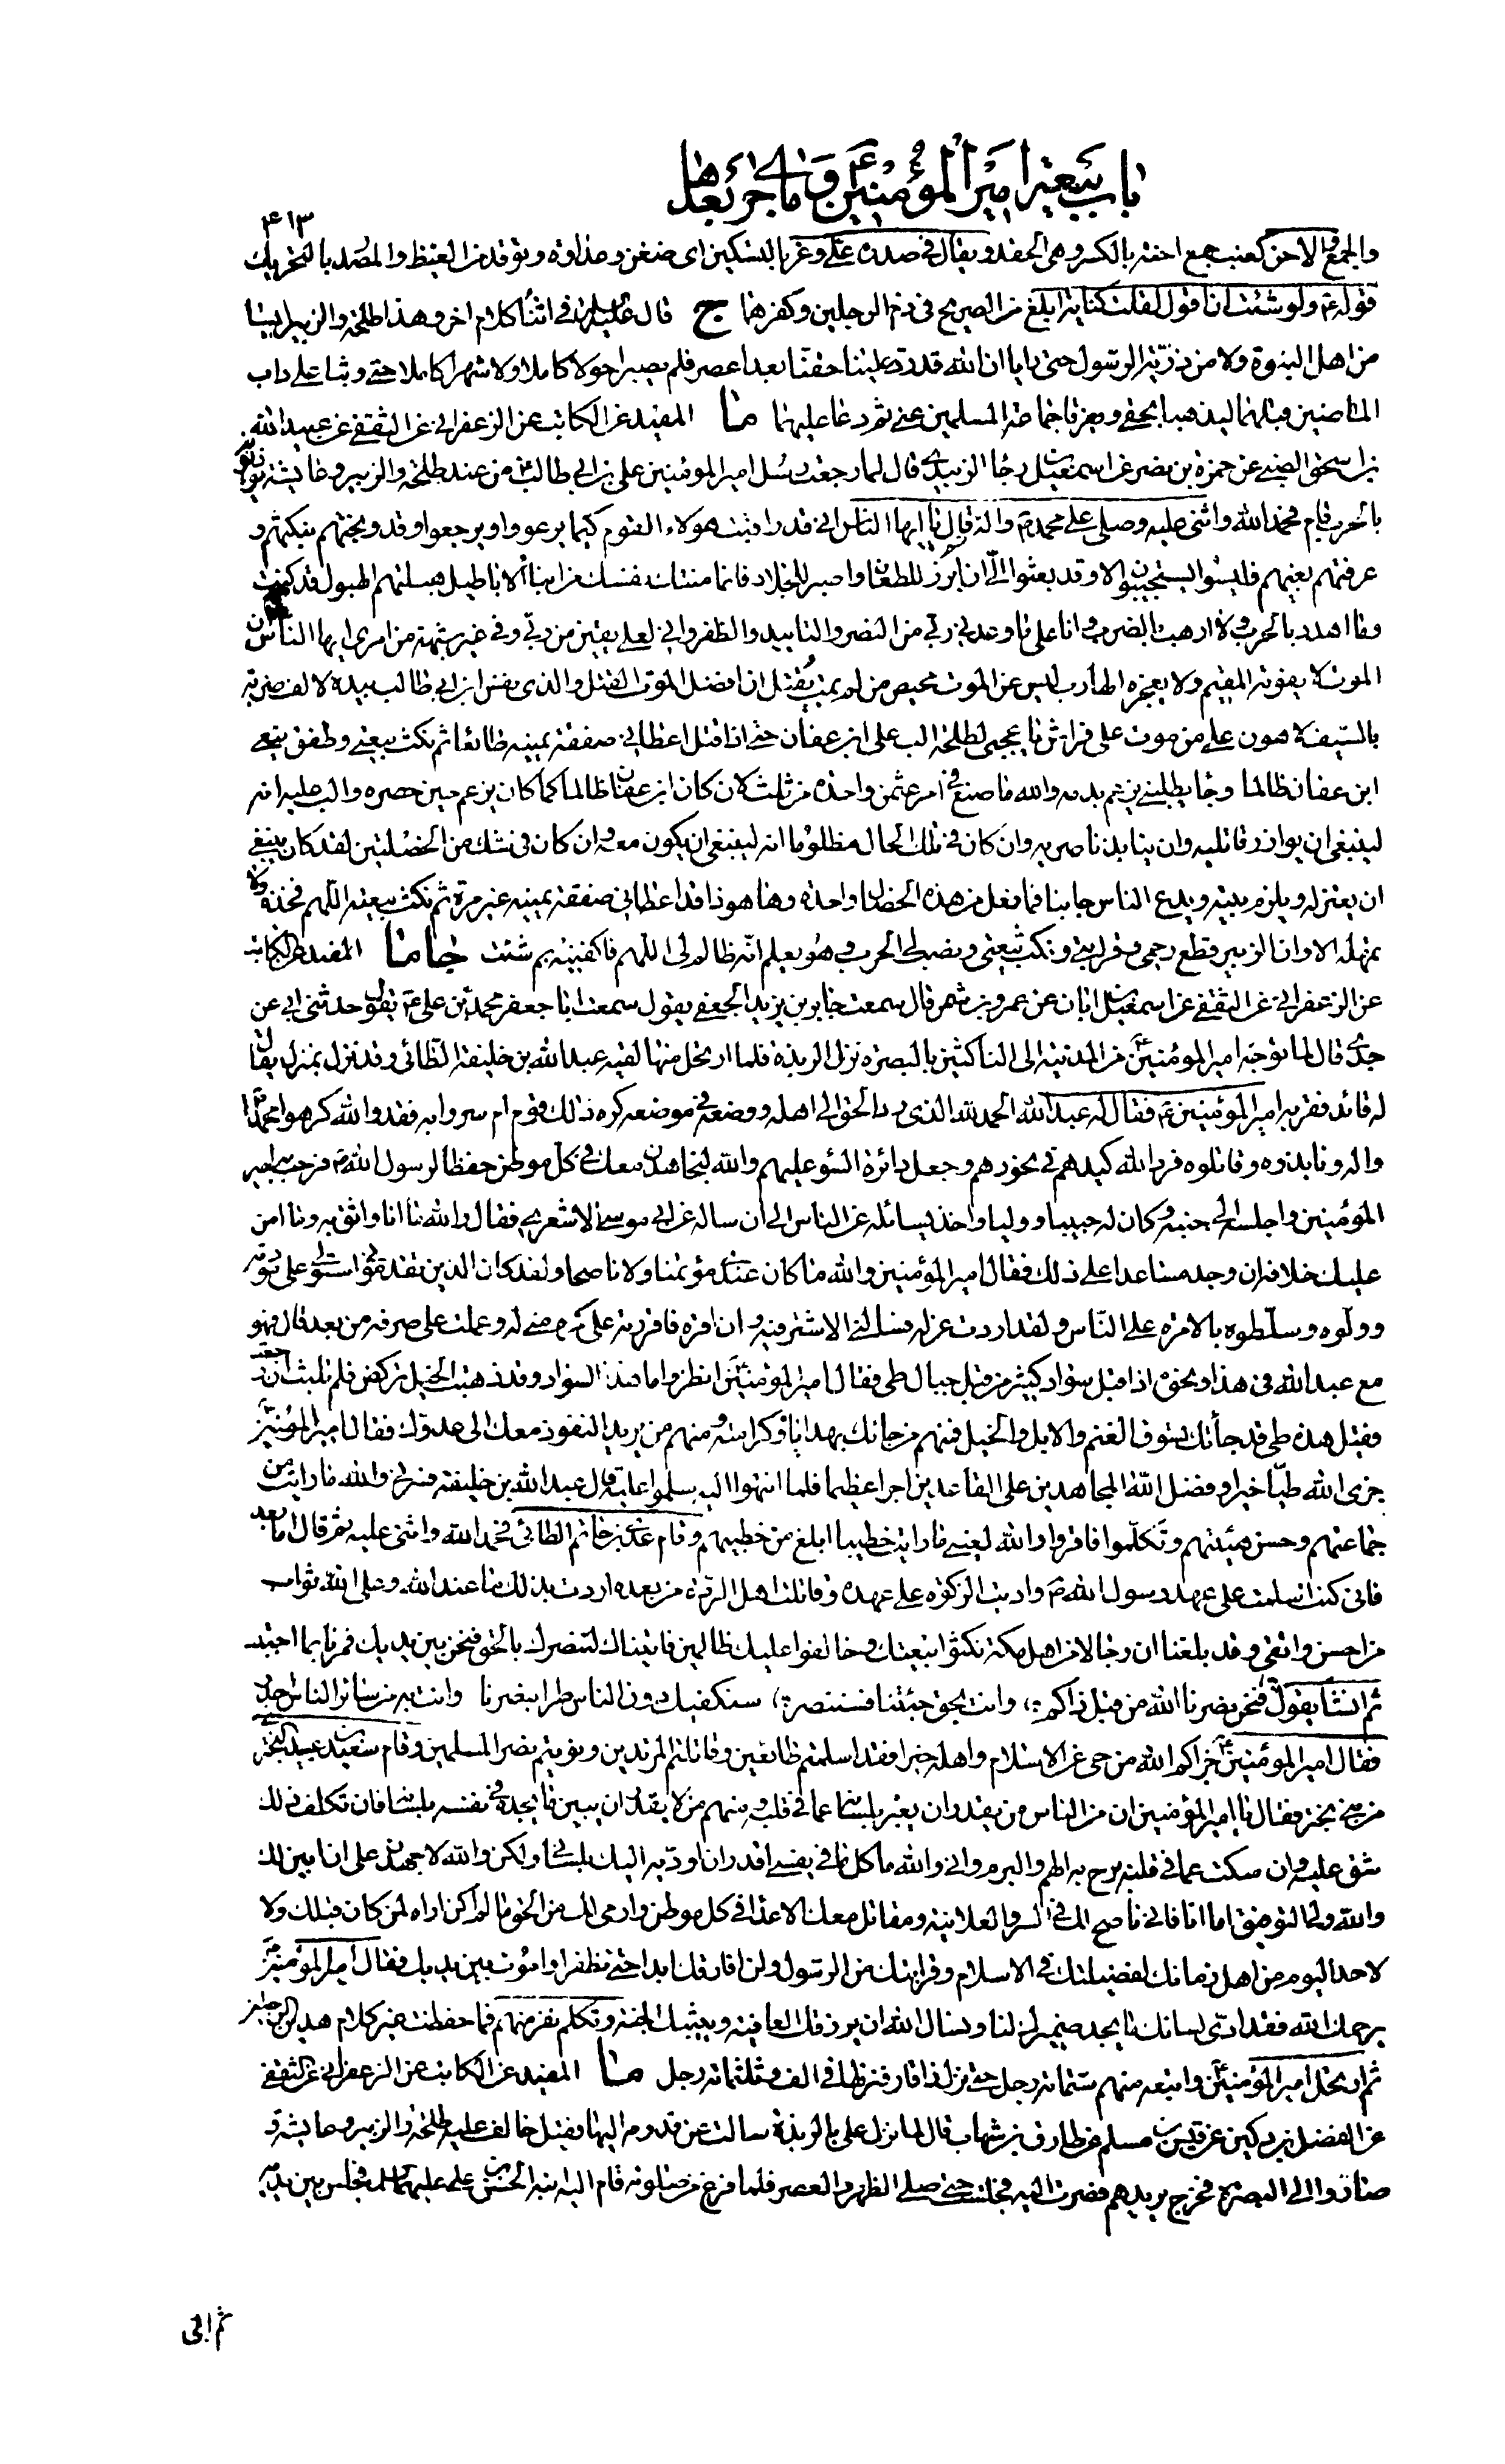 باب بيعة امير المؤمنين ع وما جرى بعدها
۴۱۳
والجمع الاحن كعنب جمع احنة بالكسر وهى الحقد ويقال فى صدره على وغر بالتسكين اى ضغن وعداوة وتوقد من الغيظ والمصدر بالتحريك
قوله ع ولو شئت ان اقول لقلت كناية ابلغ من الصريح فى ذم الرجلين وكفرهما ج قال عليه السلام فى اثناء كلام اخر وهذا طلحة والزبير ليسا
من اهل النبوة ولا من ذرية الرسول حتى رايا ان الله قد رد علينا حقنا بعد اعصر فلم يصبرا حولا كاملا ولا شهرا كاملا حتى وثبا على داب
الماضين قبلهما ليذهبا بحقى ويفرقا جماعة المسلمين عنى ثم دعا عليهما ما المفيد عن الكاتب عن الزعفرانى عن الثقفى عن عبيد الله
بن اسحق الضبى عن حمزة بن نصر عن اسمعيل بن رجا الزبيدى قال لما رجعت رسل امير المؤمنين على بن ابى طالب ع من عند طلحة والزبير وعايشة يؤذنونه
بالحرب قام فحمد الله واثنى عليه وصلى على محمد ص واله ثم قال يا ايها الناس انى قد راقبت هولاء القوم كيما يرعووا او يرجعوا وقد وبختهم بنكثهم و
عرفتهم بغيهم فليسوا يستجيبون الا وقد بعثوا الى ان ابرز للطعان واصبر للجلاد فانما منتك نفسك من ابنا الاباطيل هبلتهم الهبول قد كنت
وما اهدد بالحرب ولا ارهب بالضرب وانا على ما وعدنى ربى من النصر والتاييد والظفر وانى لعلى يقين من ربى وفى غير شبهة من امرى ايها الناس ان
الموت لا يفوته المقيم ولا يعجزه الهارب ليس عن الموت محيص من لم يمت يقتل ان افضل الموت القتل والذى نفس ابن ابى طالب بيده لالف ضربة
بالسيف لاهون على من موت على فراش يا عجبى لطلحة الب على ابن عفان حتى اذا قتل اعطانى صفقة يمينه طائعا ثم نكث بيعتى وطفق ينعى
ابن عفان ظالما وجا يطلبنى يزعم بدمه والله ما صنع فى امر عثمن واحدة من ثلث لان كان ابن عفان ظالما كما كان يزعم حين حصره والب عليه انه
لينبغى ان يوازر قاتليه وان ينابذ ناصريه وان كان فى تلك الحال مظلوما انه لينبغى ان يكون معه وان كان فى شك من الخصلتين لقد كان ينبغى
ان يعتزله ويلزم بيته ويدع الناس جانبا فما فعل من هذه الخصال واحدة وها هو ذا قد اعطانى صفقة يمينه غير مرة ثم نكث بيعته اللهم فخذه ولا
تمهله الا وان الزبير قطع رحمى وقرابتى ونكث بيعتى ونصب لى الحرب وهو يعلم انه ظالم لى اللهم فاكفينه بم شئت جا ما المفيد عن الكاتب
عن الزعفرانى عن الثقفى عن اسمعيل بن ابان عن عمرو بن شمر قال سمعت جابر بن يزيد الجعفى يقول سمعت ابا جعفر محمد بن على ع يقول حدثنى ابى عن
جدى قال لما توجه امير المؤمنين ع من المدينة الى الناكثين بالبصرة نزل الربذة فلما ارتحل منها لقيه عبد الله بن خليفة الطائى وقد نزل بمنزل يقال
له قائد فقربه امير المؤمنين ع فقال له عبد الله الحمد لله الذى رد الحق الى اهله ووضعه فى موضعه كره ذلك قوم ام سروا به فقد والله كرهوا محمدا ص
واله ونابذوه وقاتلوه فرد الله كيدهم فى نحورهم وجعل دائرة السوء عليهم والله لنجاهدن معك فى كل موطن حفظا لرسول الله ص فرحب به امير
المؤمنين واجلسه الى جنبه وكان له حبيبا ووليا واخذ يسائله عن الناس الى ان ساله عن ابى موسى الاشعرى فقال والله ما انا واثق به وما امن
عليك خلافه ان وجد مساعدا على ذلك فقال امير المؤمنين والله ما كان عندى مؤتمنا ولا ناصحا ولقد كان الذين تقدمونى استولوا على مودته
وولوه وسلطوه بالامرة على الناس ولقد اردت عزله فسالنى الاشتر فيه وان اقره فاقررته على كره منى له وعملت على صرفه من بعد قال فهو
مع عبد الله فى هذا ونحوه اذا قبل سواد كثير من قبل جبال طى فقال امير المؤمنين ع انظروا ما هذا السواد وقد ذهبت الخيل تركض فلم تلبث ان رجعت
فقيل هذه طى قد جائتك تسوق الغنم والابل والخيل فمنهم من جائك بهداياه وكرامته ومنهم من يريد النفوذ معك الى عدوك فقال امير المؤمنين ع
جزى الله طيا خيرا وفضل الله المجاهدين على القاعدين اجرا عظيما فلما انتهوا اليه سلموا عليه قال عبد الله بن خليفة فسرنى والله ما رايت من
جماعتهم وحسن هيئتهم وتكلموا فاقروا والله لعينى ما رايت خطيبا ابلغ من خطيبهم وقام عدى بن حاتم الطائى فحمد الله واثنى عليه ثم قال اما بعد
فانى كنت اسلمت على عهد رسول الله ص واديت الزكوة على عهده وقاتلت اهل الردة من بعده اردت بذلك ما عند الله وعلى الله ثواب
من احسن واتقى وقد بلغنا ان رجالا من اهل مكة نكثوا بيعتك وخالفوا عليك ظالمين فاتيناك لننصرك بالحق فنحن بين يديك فمرنا بما احببت
ثم انشا يقول فنحن نصرنا الله من قبل ذاكم، وانت بحق جئتنا فستنصر، سنكفيك دون الناس طرا بنصرنا وانت به من سائر الناس اجدر
فقال امير المؤمنين ع جزاكم الله من حى عن الاسلام واهله خيرا فقد اسلمتم طائعين وقاتلتم المرتدين ونويتم نصر المسلمين وقام سعيد بن عبيد البحترى
من بنى بحتر فقال يا امير المؤمنين ان من الناس من يقدر ان يعبر بلسانه عما فى قلبه ومنهم من لا يقدر ان يبين ما يجده فى نفسه بلسانه فان تكلف ذلك
شق عليه وان سكت عما فى قلبه برح به الهم والبرم وانى والله ما كل ما فى نفسى اقدر ان اوديه اليك بلسانى ولكن والله لاجهدن على ان ابين لك
والله ولى التوفيق اما انا فانى ناصح لك فى السر والعلانية ومقاتل معك الاعداء فى كل موطن وارى لك من الحق ما لم اكن اراه لمن كان قبلك ولا
لاحد اليوم من اهل زمانك لفضيلتك فى الاسلام وقرابتك من الرسول ولن افارقك ابدا حتى تظفر او اموت بين يديك فقال له امير المؤمنين ع
يرحمك الله فقد ادى لسانك ما يجد ضميرك لنا ونسال الله ان يرزقك العافية ويثيبك الجنة وتكلم نفر منهم فما حفظت غير كلام هذين الرجلين
ثم ارتحل امير المؤمنين ع واتبعه منهم ستمائة رجل حتى نزل ذا قار فنزلها فى الف وثلثمائة رجل ما المفيد عن الكاتب عن الزعفرانى عن الثقفى
عن الفضل بن دكين عن قيس بن مسلم عن طارق بن شهاب قال لما نزل على بالربذة سالت عن قدومه اليها فقيل خالف عليه طلحة والزبير وعايشة و
صاروا الى البصرة فخرج يريدهم فصرت اليه فجلست حتى صلى الظهر والعصر فلما فرغ من صلوته قام اليه ابنه الحسن بن على عليهما السلم فجلس بين يديه
ثم ابى